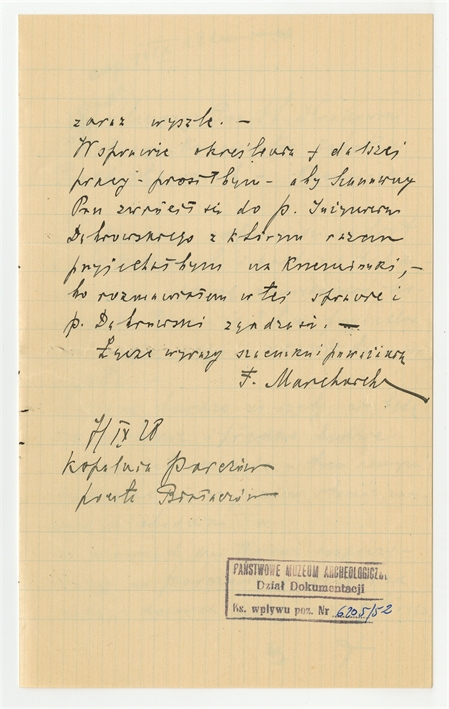 zaraz wyszlę. —
W sprawie określenia i dalszej
pracy - prosiłbym - aby Szanowny
Pan zwrócił się do p. Inżyniera
Dąbrowskiego z którym razem
przyjechałbym na Krzemionki, -
bo rozmawiałem w tej sprawie i
p. Dąbrowski zgadza się. —
Łączę wyrazy szacunku i poważania
F.
7/IX 28
Kopalnia
poczta
PAŃSTWOWE MUZEUM ARCHEOLOGICZNE
Dział Dokumentacji
Ks. wpływu poz. Nr 6205/52